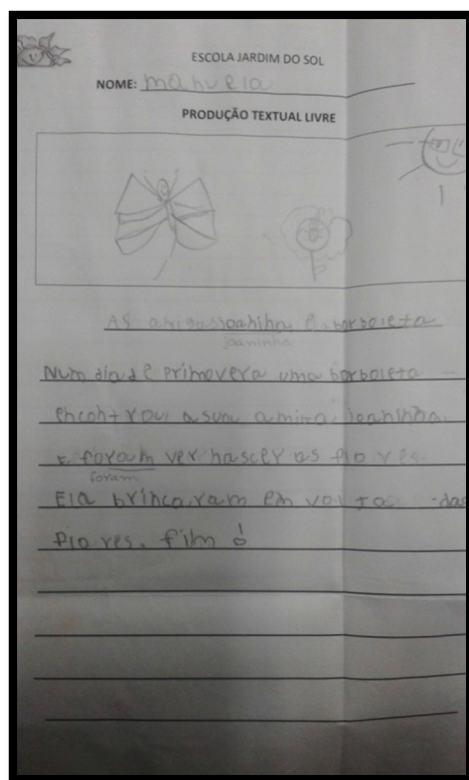 ESCOLA JARDIM DO SOL
NOME: manuela
PRODUÇÃO TEXTUAL LIVRE
AS amigas joaninha e borboleta
joaninha
Num dia de primovera uma borboleta
encontrou a sua amiga joaninha.
E foram ver nascer as flores
foram
Ela brincaram em volta das
flores. film!